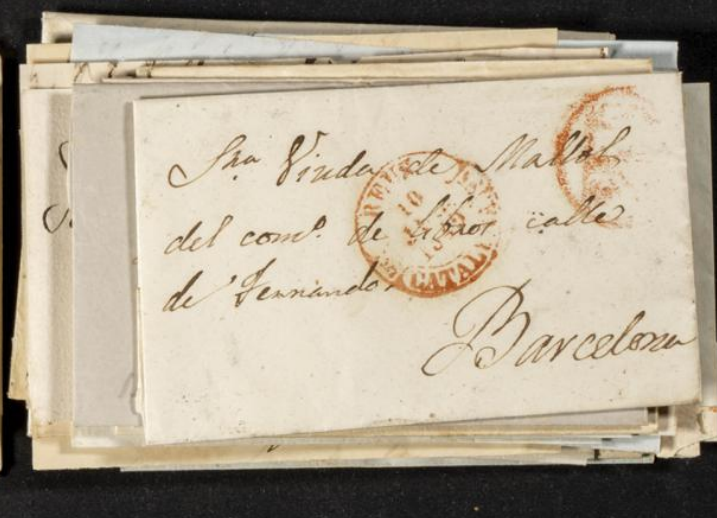 Sra. Viuda de Mallol
del como. de libros calle
de Fernando.
Barcelona
REUS
10
CATAL